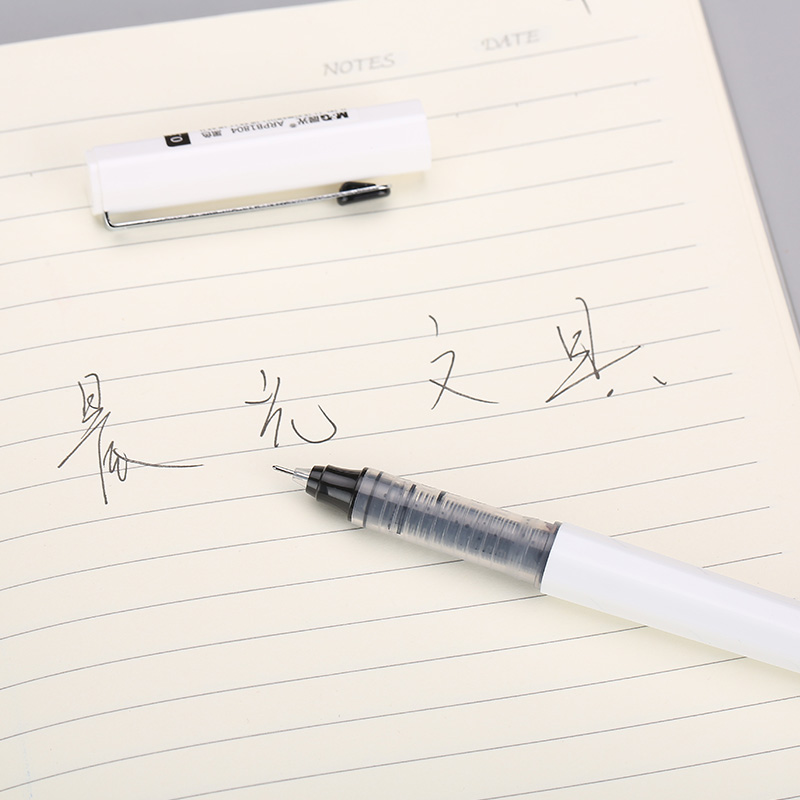 NOTES DATE
M&G晨光® ARPB1804 黑色
晨光文具